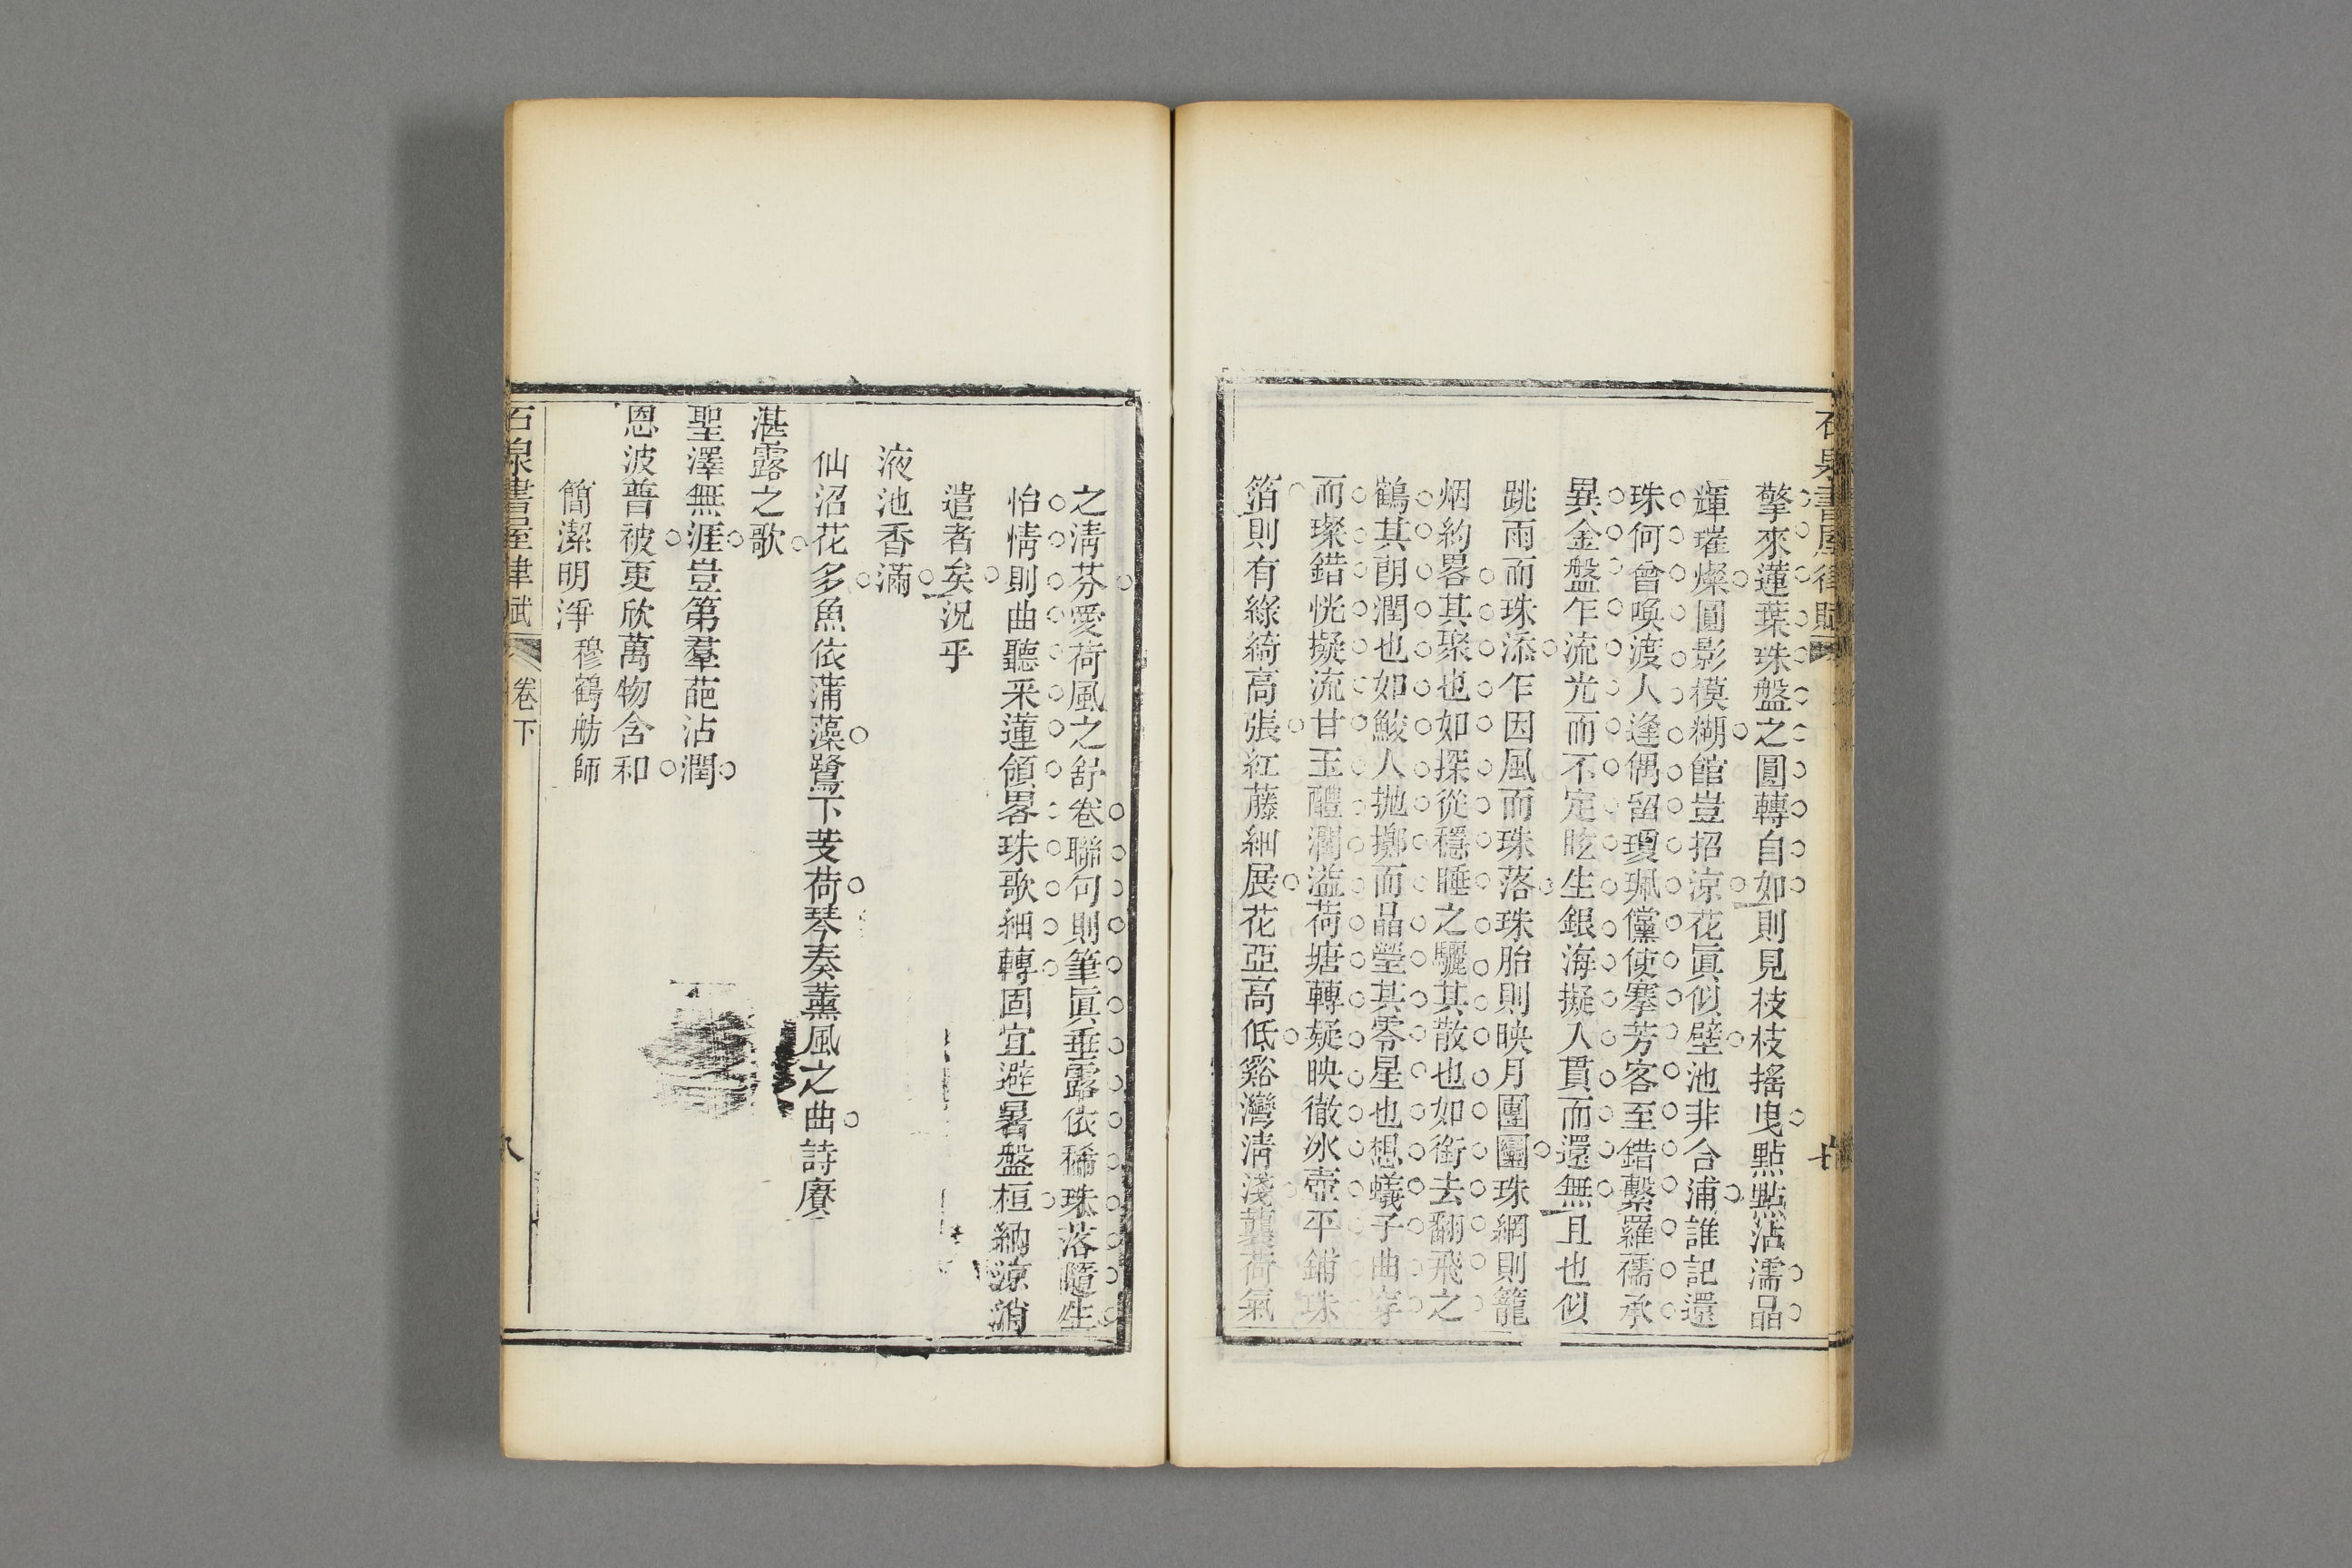 石泉書屋律賦
擎來蓮葉珠盤之圓轉自如則見枝枝搖曳點點沾濡晶
輝璀燦圓影模糊館豈招涼花眞似璧池非合浦誰記還
珠何曾喚渡人逢偶留瓊珮儻使搴芳客至錯繫羅襦承
異金盤乍流光而不定眩生銀海擬入貫而還無且也似
跳雨而珠添乍因風而珠落珠胎則映月團圞珠網則籠
烟約畧其聚也如探從穩睡之驪其散也如銜去翻飛之
鶴其朗潤也如鮫人抛擲而晶瑩其零星也想蟻子曲穿
而璨錯恍擬流甘玉醴潤溢荷塘轉疑映徹冰壺平鋪珠
箔則有綠綺高張紅藤細展花亞高低谿灣淸淺襲荷氣
之淸芬愛荷風之舒卷聯句則筆眞垂露依稀珠落隨生
怡情則曲聽采蓮領畧珠歌細轉固宜避暑盤桓納涼消
遣者矣況乎
液池香滿
仙沼花多魚依蒲藻鷺下芰荷琴奏薰風之曲詩賡
湛露之歌
聖澤無涯豈第羣葩沾潤
恩波普被更欣萬物含和
簡潔明淨 穆鶴舫師
石泉書屋律賦 卷下 八